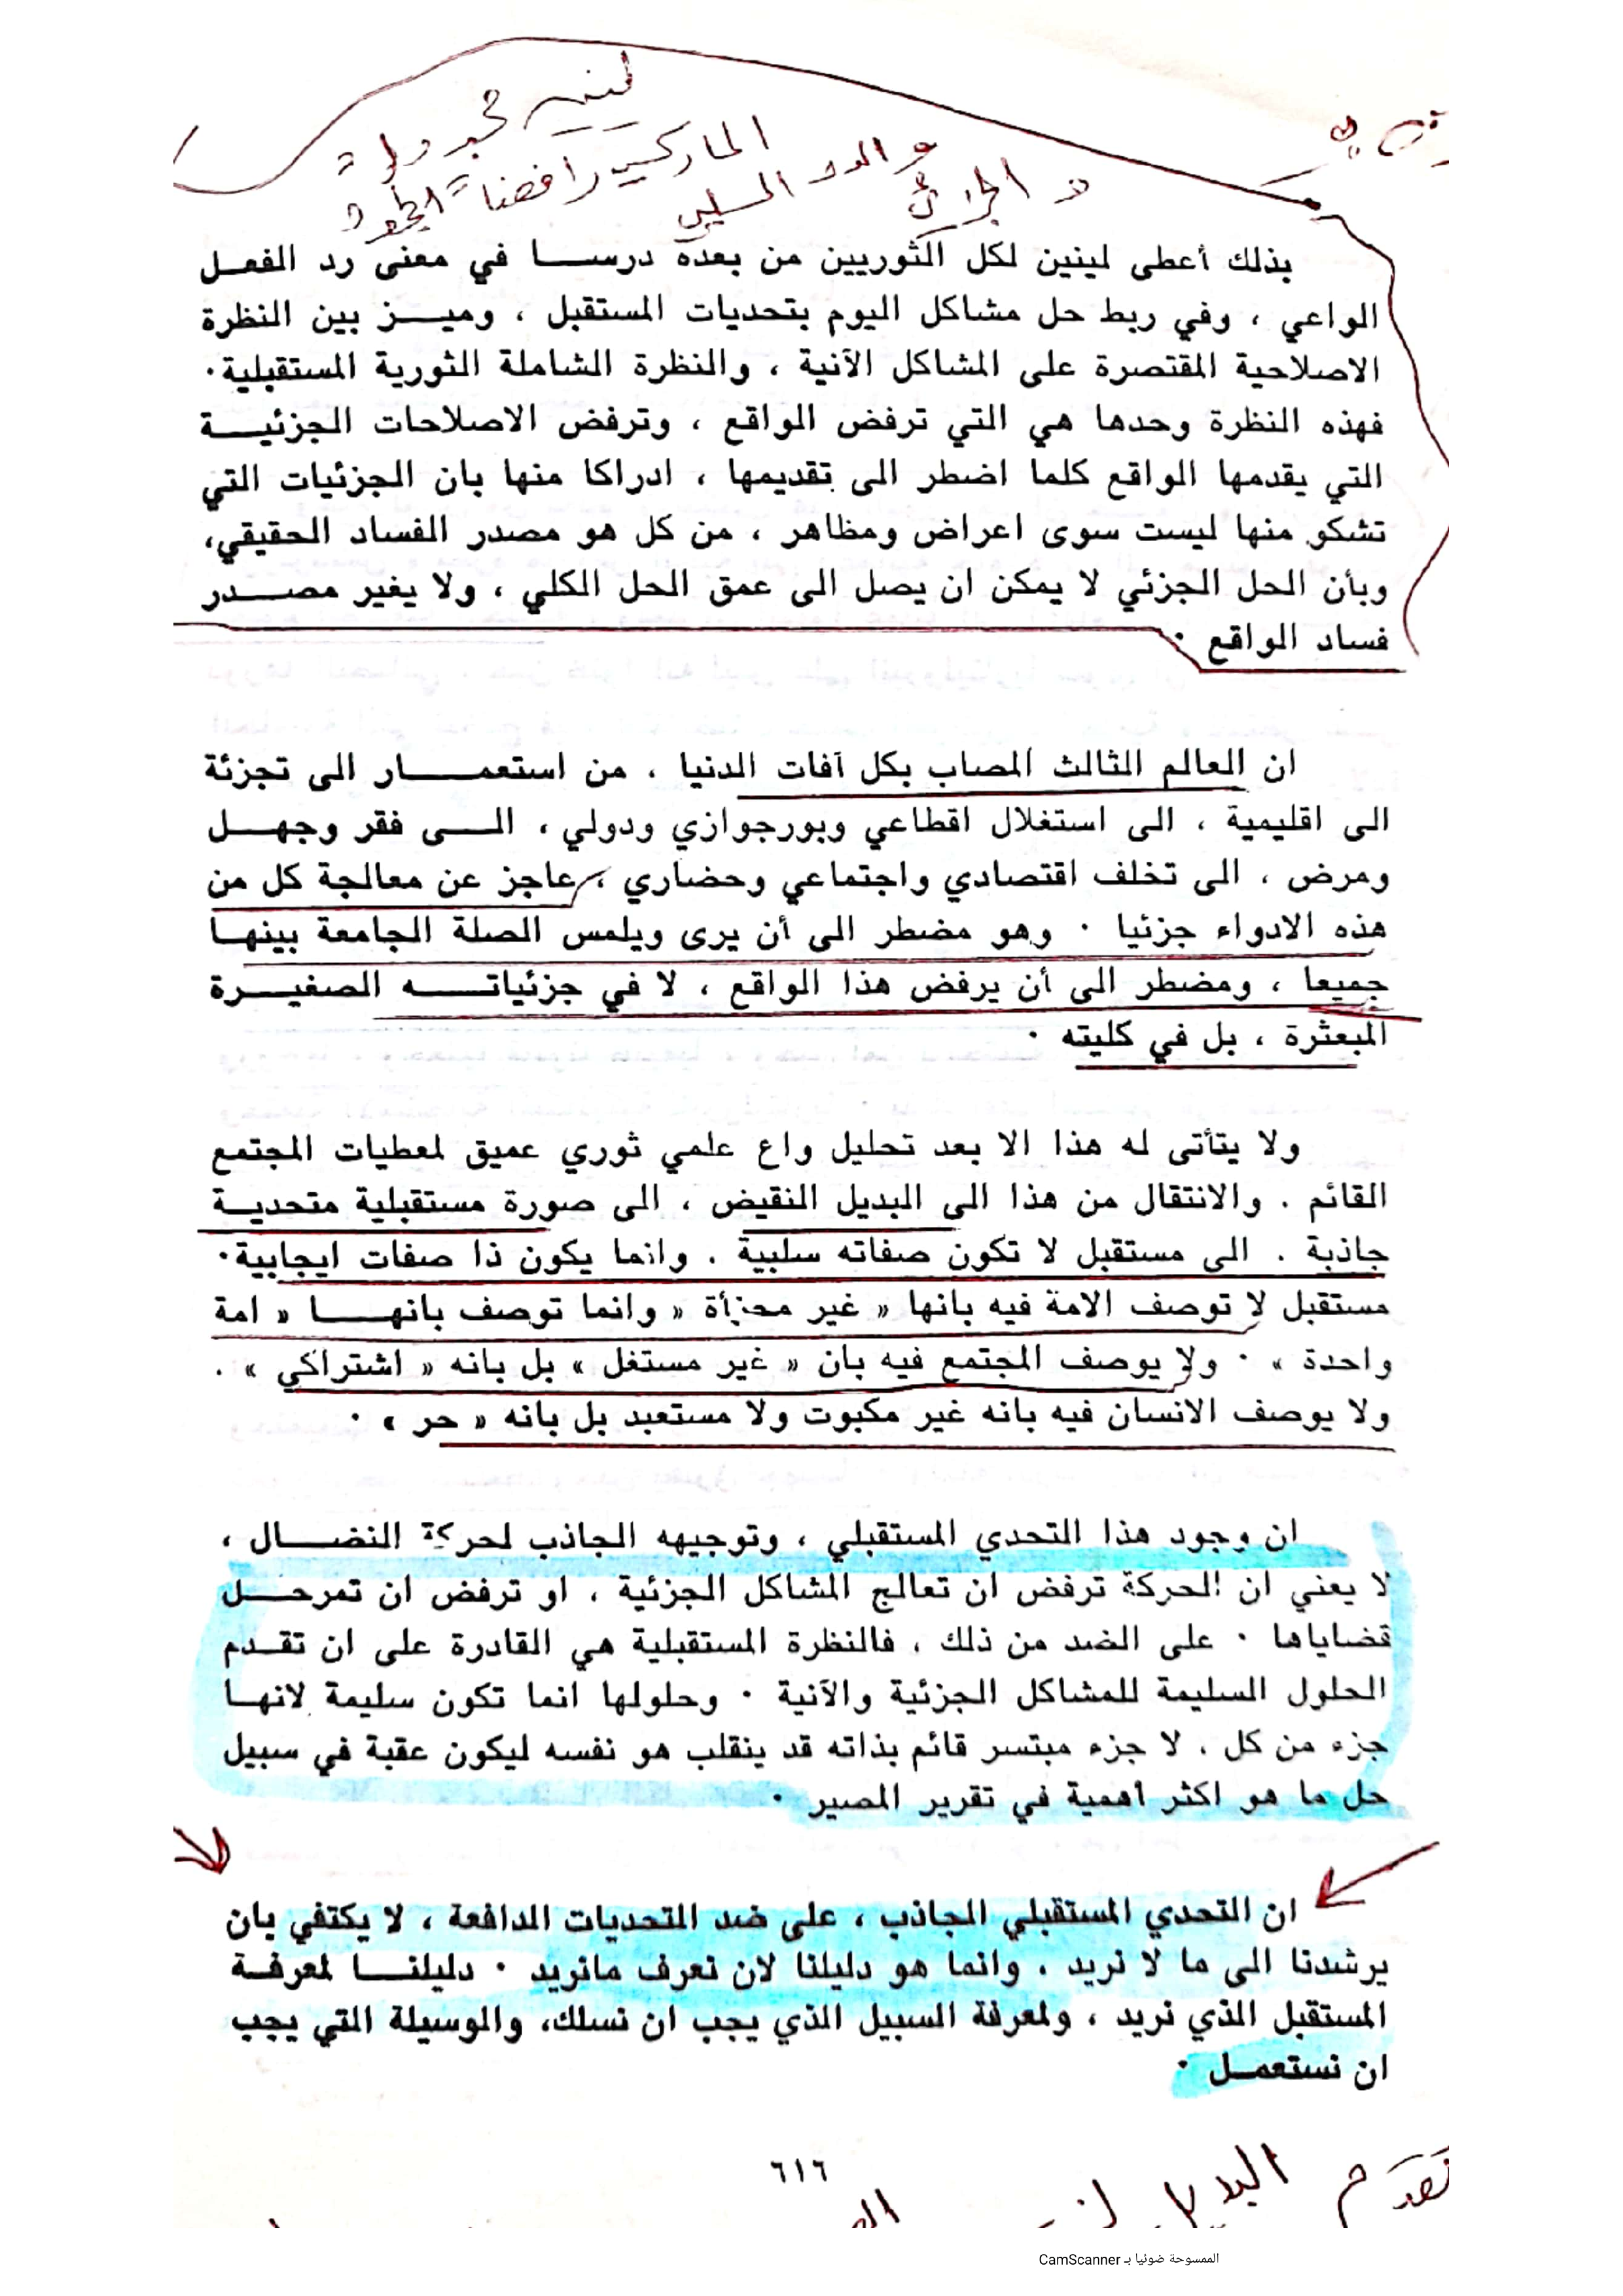 لينين
الماركسي رافضا الجمود
والرد السلبي
و الجزئي
بذلك أعطى لينين لكل الثوريين من بعده درسا في معنى رد الفعل
الواعي ، وفي ربط حل مشاكل اليوم بتحديات المستقبل ، وميز بين النظرة
الاصلاحية المقتصرة على المشاكل الآنية ، والنظرة الشاملة الثورية المستقبلية ٠
فهذه النظرة وحدها هي التي ترفض الواقع ، وترفض الاصلاحات الجزئية
التي يقدمها الواقع كلما اضطر الى تقديمها ، ادراكا منها بان الجزئيات التي
تشكو منها ليست سوى اعراض ومظاهر ، من كل هو مصدر الفساد الحقيقي،
وبأن الحل الجزئي لا يمكن ان يصل الى عمق الحل الكلي ، ولا يغير مصدر
فساد الواقع ٠
ان العالم الثالث المصاب بكل آفات الدنيا ، من استعمار الى تجزئة
الى اقليمية ، الى استغلال اقطاعي وبورجوازي ودولي ، الى فقر وجهل
ومرض ، الى تخلف اقتصادي واجتماعي وحضاري ، عاجز عن معالجة كل من
هذه الادواء جزئيا ٠ وهو مضطر الى أن يرى ويلمس الصلة الجامعة بينها
جميعا ، ومضطر الى أن يرفض هذا الواقع ، لا في جزئياته الصغيرة
المبعثرة ، بل في كليته ٠
ولا يتأتى له هذا الا بعد تحليل واع علمي ثوري عميق لمعطيات المجتمع
القائم . والانتقال من هذا الى البديل النقيض ، الى صورة مستقبلية متحدية
جاذبة . الى مستقبل لا تكون صفاته سلبية . وانما يكون ذا صفات ايجابية ٠
مستقبل لا توصف الامة فيه بانها « غير مجزأة « وانما توصف بانها « امة
واحدة » ٠ ولا يوصف المجتمع فيه بان « غير مستغل » بل بانه « اشتراكي » .
ولا يوصف الانسان فيه بانه غير مكبوت ولا مستعبد بل بانه « حر » ٠
ان وجود هذا التحدي المستقبلي ، وتوجيهه الجاذب لحركة النضال ،
لا يعني ان الحركة ترفض ان تعالج المشاكل الجزئية ، او ترفض ان تمرحل
قضاياها ٠ على الضد من ذلك ، فالنظرة المستقبلية هي القادرة على ان تقدم
الحلول السليمة للمشاكل الجزئية والآنية ٠ وحلولها انما تكون سليمة لانها
جزء من كل ، لا جزء مبتسر قائم بذاته قد ينقلب هو نفسه ليكون عقبة في سبيل
حل ما هو اكثر اهمية في تقرير المصير ٠
ان التحدي المستقبلي الجاذب ، على ضد التحديات الدافعة ، لا يكتفي بان
يرشدنا الى ما لا نريد ، وانما هو دليلنا لان نعرف مانريد ٠ دليلنا لمعرفة
المستقبل الذي نريد ، ولمعرفة السبيل الذي يجب ان نسلك، والوسيلة التي يجب
ان نستعمل ٠
٦١٦
تقدم البديل
الممسوحة ضوئيا بـ CamScanner